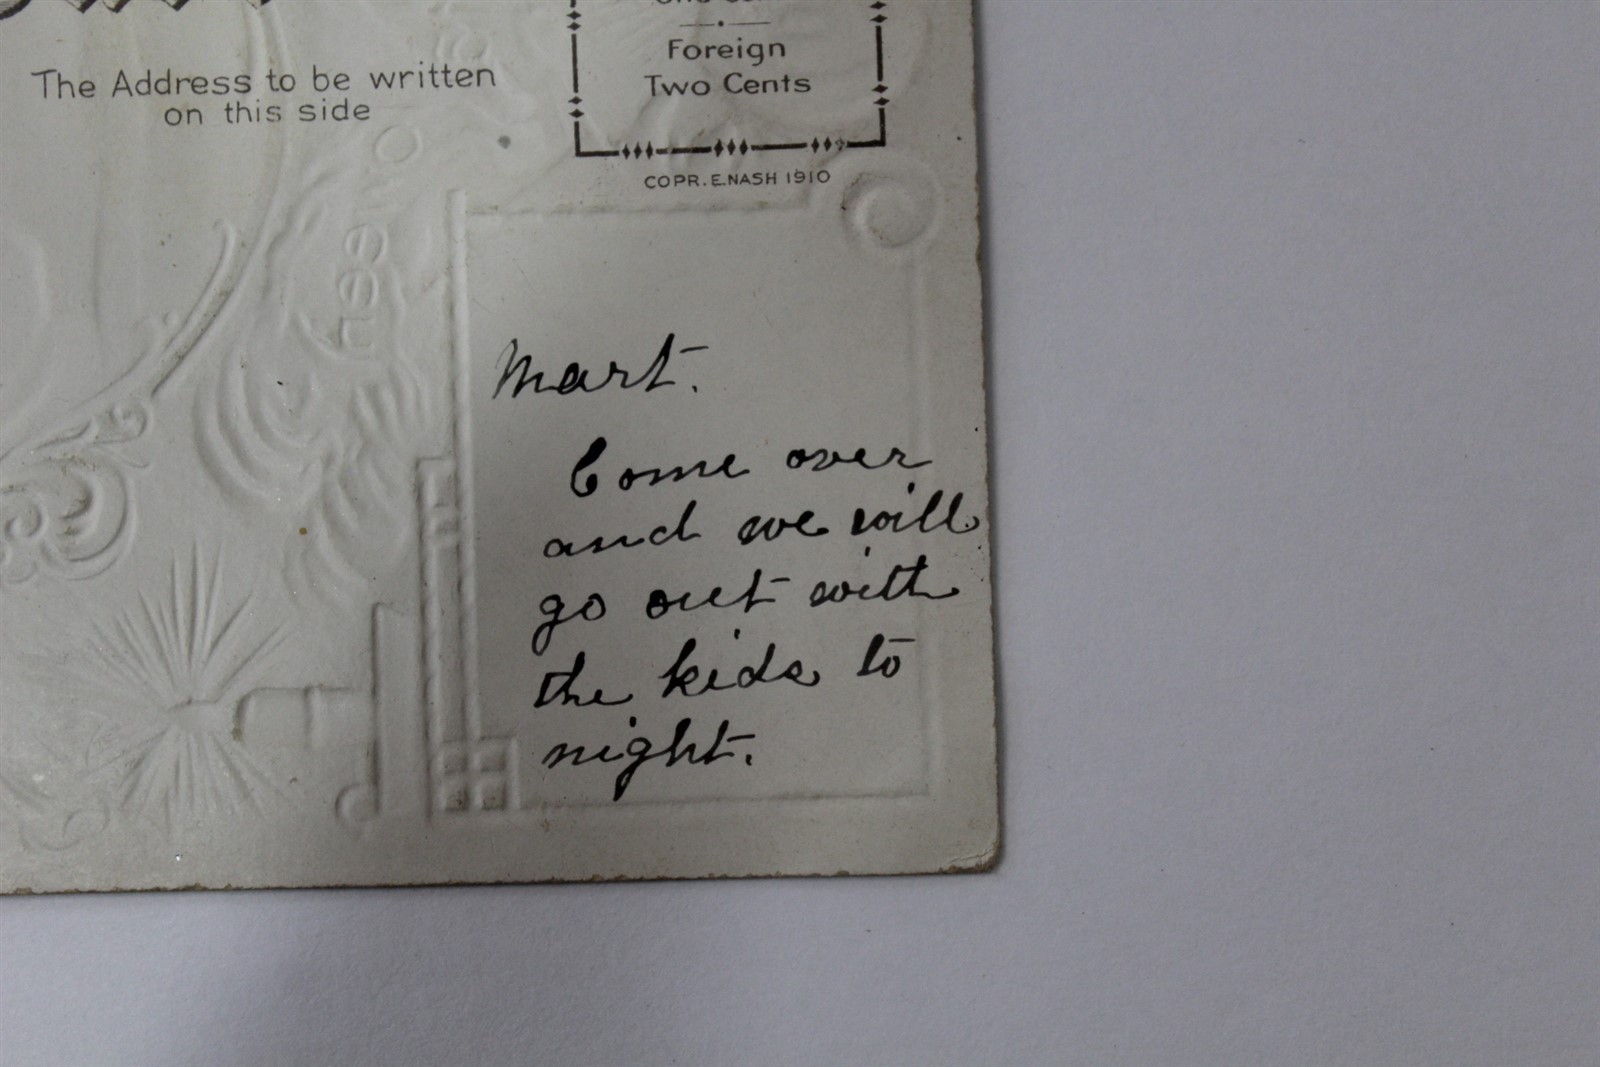 The Address to be written
on this side
Foreign
Two Cents
COPR. E. NASH 1910
Mart.
Come over
and we will
go out with
the kids to
night.